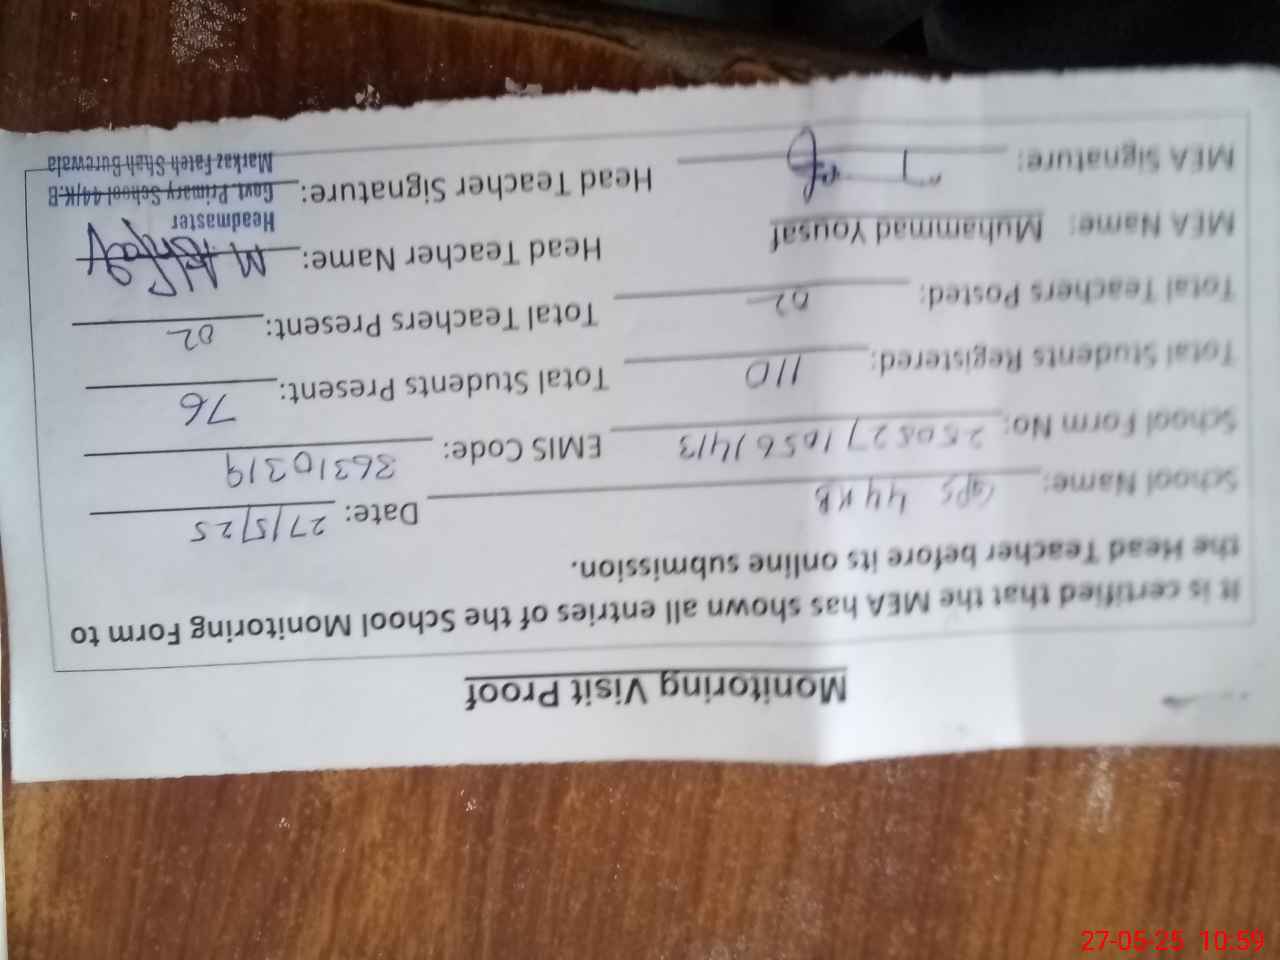 Monitoring Visit Proof
It is certified that the MEA has shown all entries of the School Monitoring Form to
the Head Teacher before its online submission.
School Name: GPS 44 KB Date: 27/5/25
School Form No: EMIS Code: 36310319
Total Students Registered: 110 Total Students Present: 76
Total Teachers Posted: 02 Total Teachers Present: 02
MEA Name: Muhammad Yousaf Head Teacher Name: M. Ashfaq
MEA Signature: Head Teacher Signature:
Headmaster
Govt. Primary School 44/K-B
Markaz Fateh Shah Burewala
27-05-25 10:59